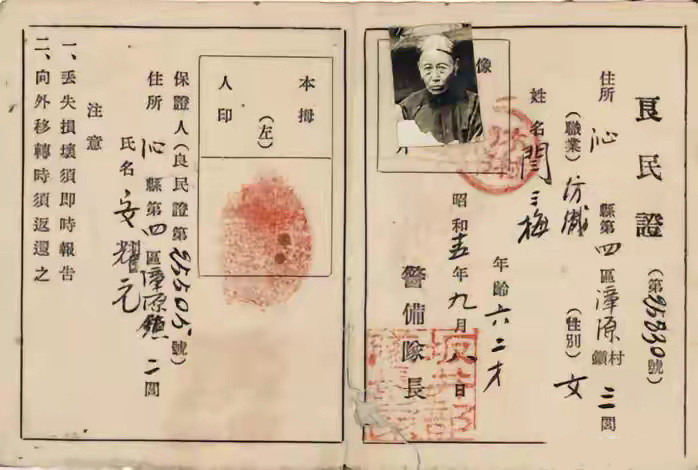 良民證（第35830號）
住所 沁縣第四區漳源村鎮三閭
（職業）紡織（性別）女
姓名閆三梅 年齡六二才
像
昭和五年九月八日
警備隊長
本人
拇印
（左）
保證人（良民證第35505號）
住所 沁縣第四區漳源鎮二閭
氏名 安耀元
注意
一、丟失損壞須即時報告
二、向外移轉時須返還之